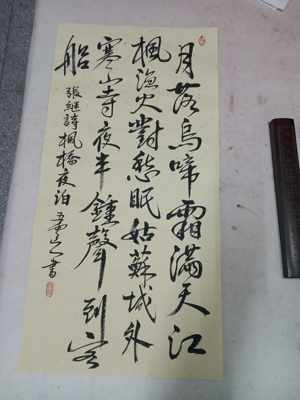 月落烏啼霜滿天江
楓漁火對愁眠姑蘇城外
寒山寺夜半鍾聲到客
船
張繼詩楓橋夜泊 書